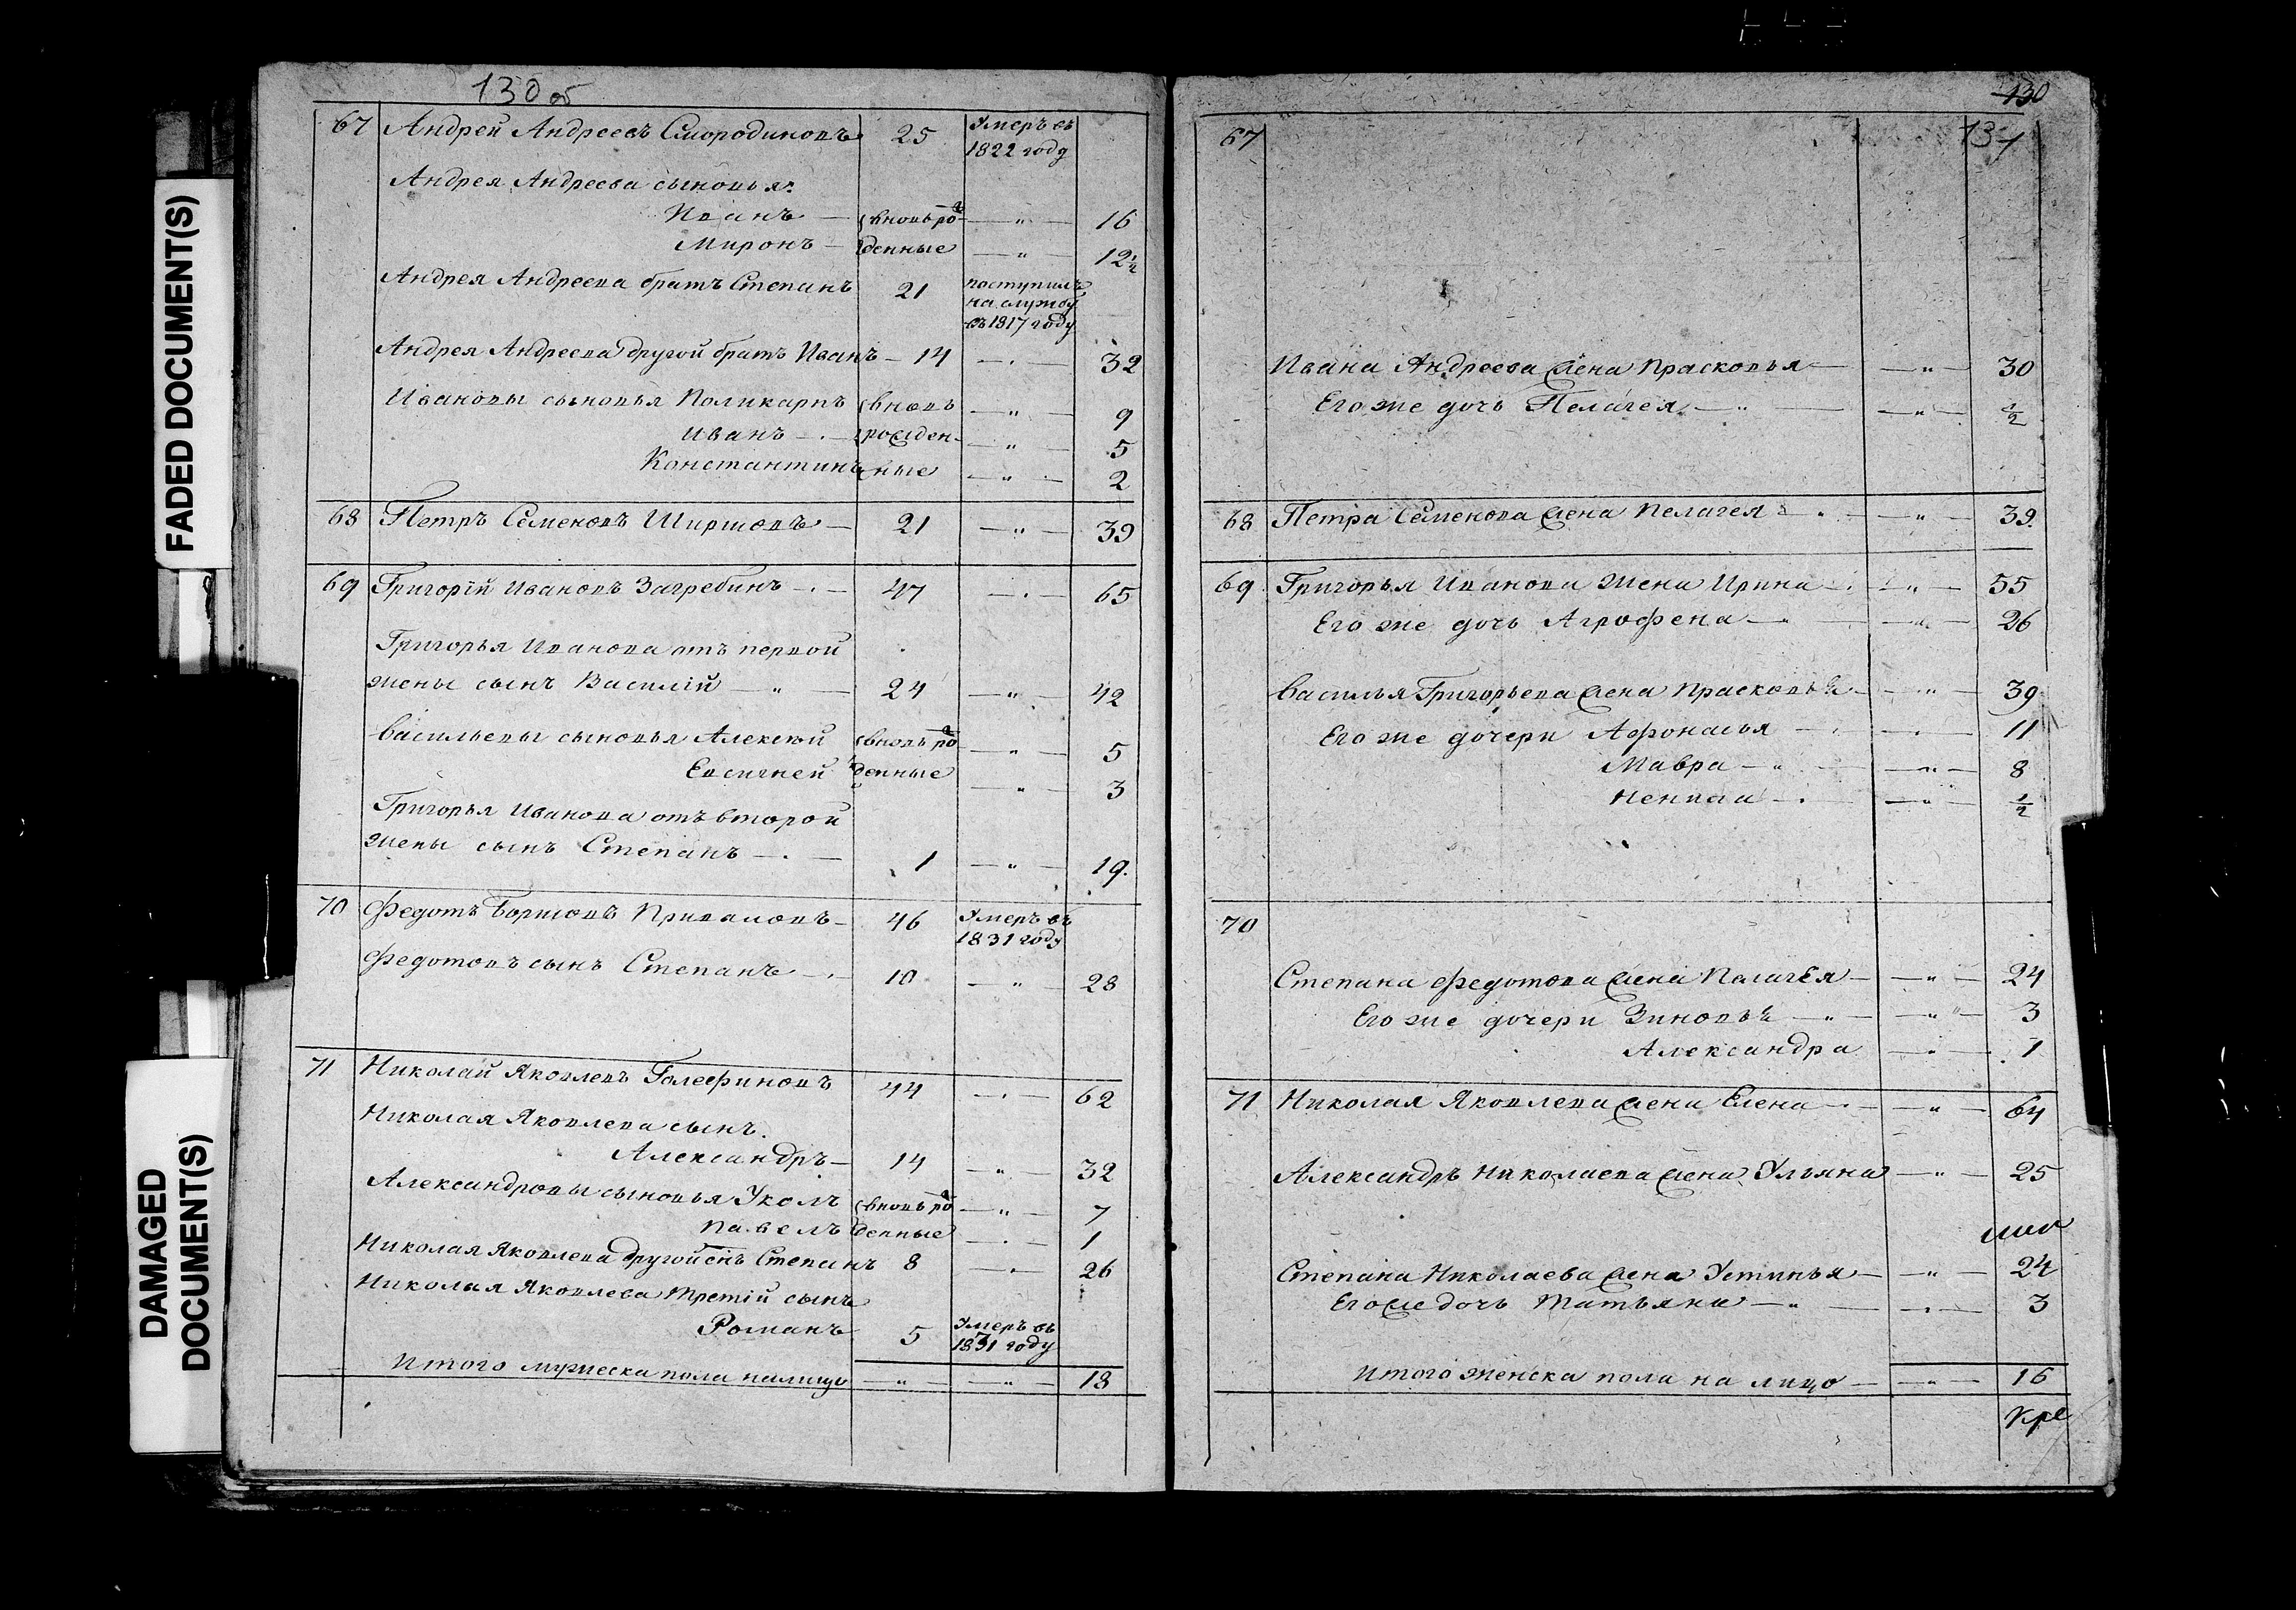 FADED DOCUMENT(S)
DAMAGED DOCUMENT(S)
130 об
67 Андрей Андреевъ Смородиновъ 25 Умеръ въ 1822 году
Андрея Андреева сыновья:
Иванъ — вновь ро — „ — 16
Миронъ — жденные — „ — 12½
Андрея Андреева братъ Степанъ 21 поступилъ на службу въ 1817 году
Андрея Андреева другой братъ Иванъ — 14 — „ — 32
Ивановы сыновья Поликарпъ вновь — „ — 9
Иванъ — рожден- — „ — 5
Константинъ ные — „ — 2
68 Петръ Семеновъ Ширшовъ — 21 — „ — 39
69 Григорій Ивановъ Загребинъ — 47 — „ — 65
Григорья Иванова отъ первой
жены сынъ Василій — „ — 24 — „ — 42
Васильевы сыновья Алексѣй вновь ро — „ — 5
Евсигней жденные — „ — 3
Григорья Иванова отъ второй
жены сынъ Степанъ — 1 — „ — 19.
70 Федотъ Привамовъ — 46 Умеръ въ 1831 году
Федотовъ сынъ Степанъ — 10 — „ — 28
71 Николай Яковлевъ 44 — „ — 62
Николая Яковлева сынъ.
Александръ — 14 — „ — 32
Александровы сыновья вновь ро — „ — 7
Павелъ жденные — „ — 1
Николая Яковлева другой снъ Степанъ 8 — „ — 26
Николая Яковлева третій сынъ
Романъ 5 Умеръ въ 1831 году
Итого мужеска пола налицо — „ — „ — 18
130
131
67
Ивана Андреева жена Прасковья — „ — 30
Его же дочь Пелагея — „ — „ — ½
68 Петра Семенова жена Пелагея — „ — 39.
69 Григорья Иванова жена Ирина — „ — 55
Его же дочь Агрофена — „ — 26
Василья Григорьева жена Прасковья — „ — 39
Его же дочери Афонасья — „ — 11
Мавра — „ — „ — 8
— „ — ½
70
Степана Федотова жена Палагея — „ — 24
Его же дочери Зиновья — „ — „ — 3
Александра — „ — 1
71 Николая Яковлева жена Елена — „ — 64
Александръ Николаева жена Ульяна — „ — 25
Степана Николаева жена Устинья — „ — 24
Его же дочь Татьяна — „ — „ — 3
Итого женска пола на лицо — „ — 16
Кре